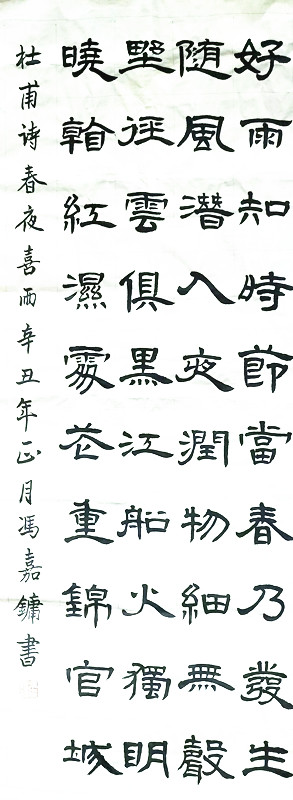 好雨知時節當春乃發生
随風潛入夜潤物細無聲
野徑雲俱黑江船火獨明
曉看紅濕處花重錦官城
杜甫诗春夜喜雨辛丑年正月馮嘉鏞書